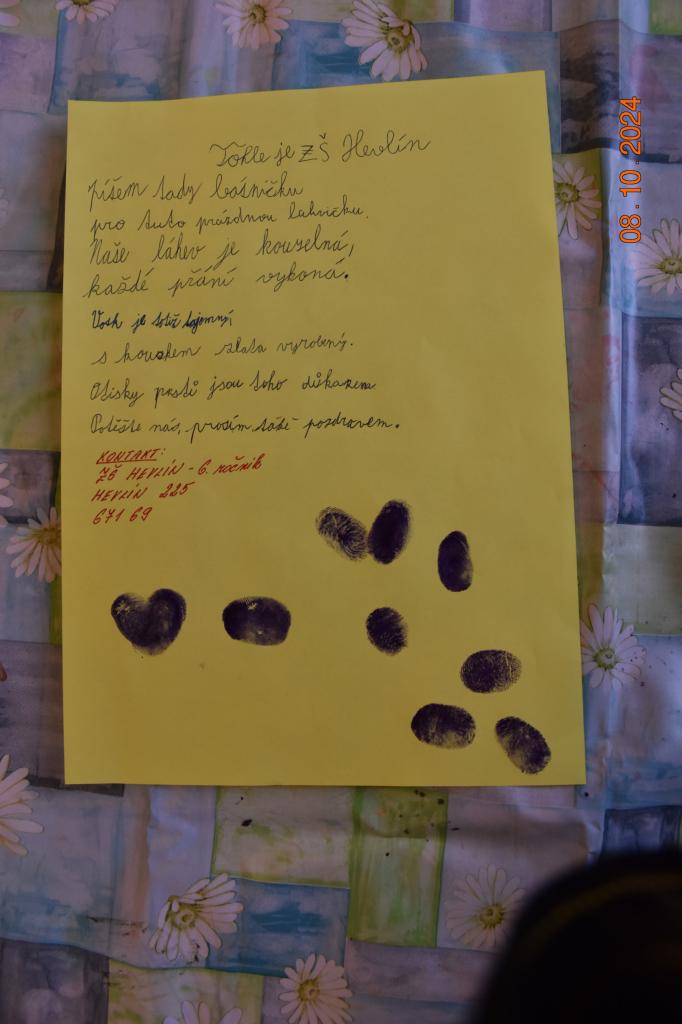 Tohle je ZŠ Hevlín
píšem tady básničku
pro tuto prázdnou lahvičku.
Naše láhev je kouzelná,
každé přání vykoná.
Vosk je totiž tajemný,
s kouskem zlata vyrobený.
Otisky prstů jsou toho důkazem
Potěšte nás, prosím také pozdravem.
KONTAKT:
ZŠ HEVLÍN - 6. ročník
HEVLÍN 225
671 69
08.10.2024